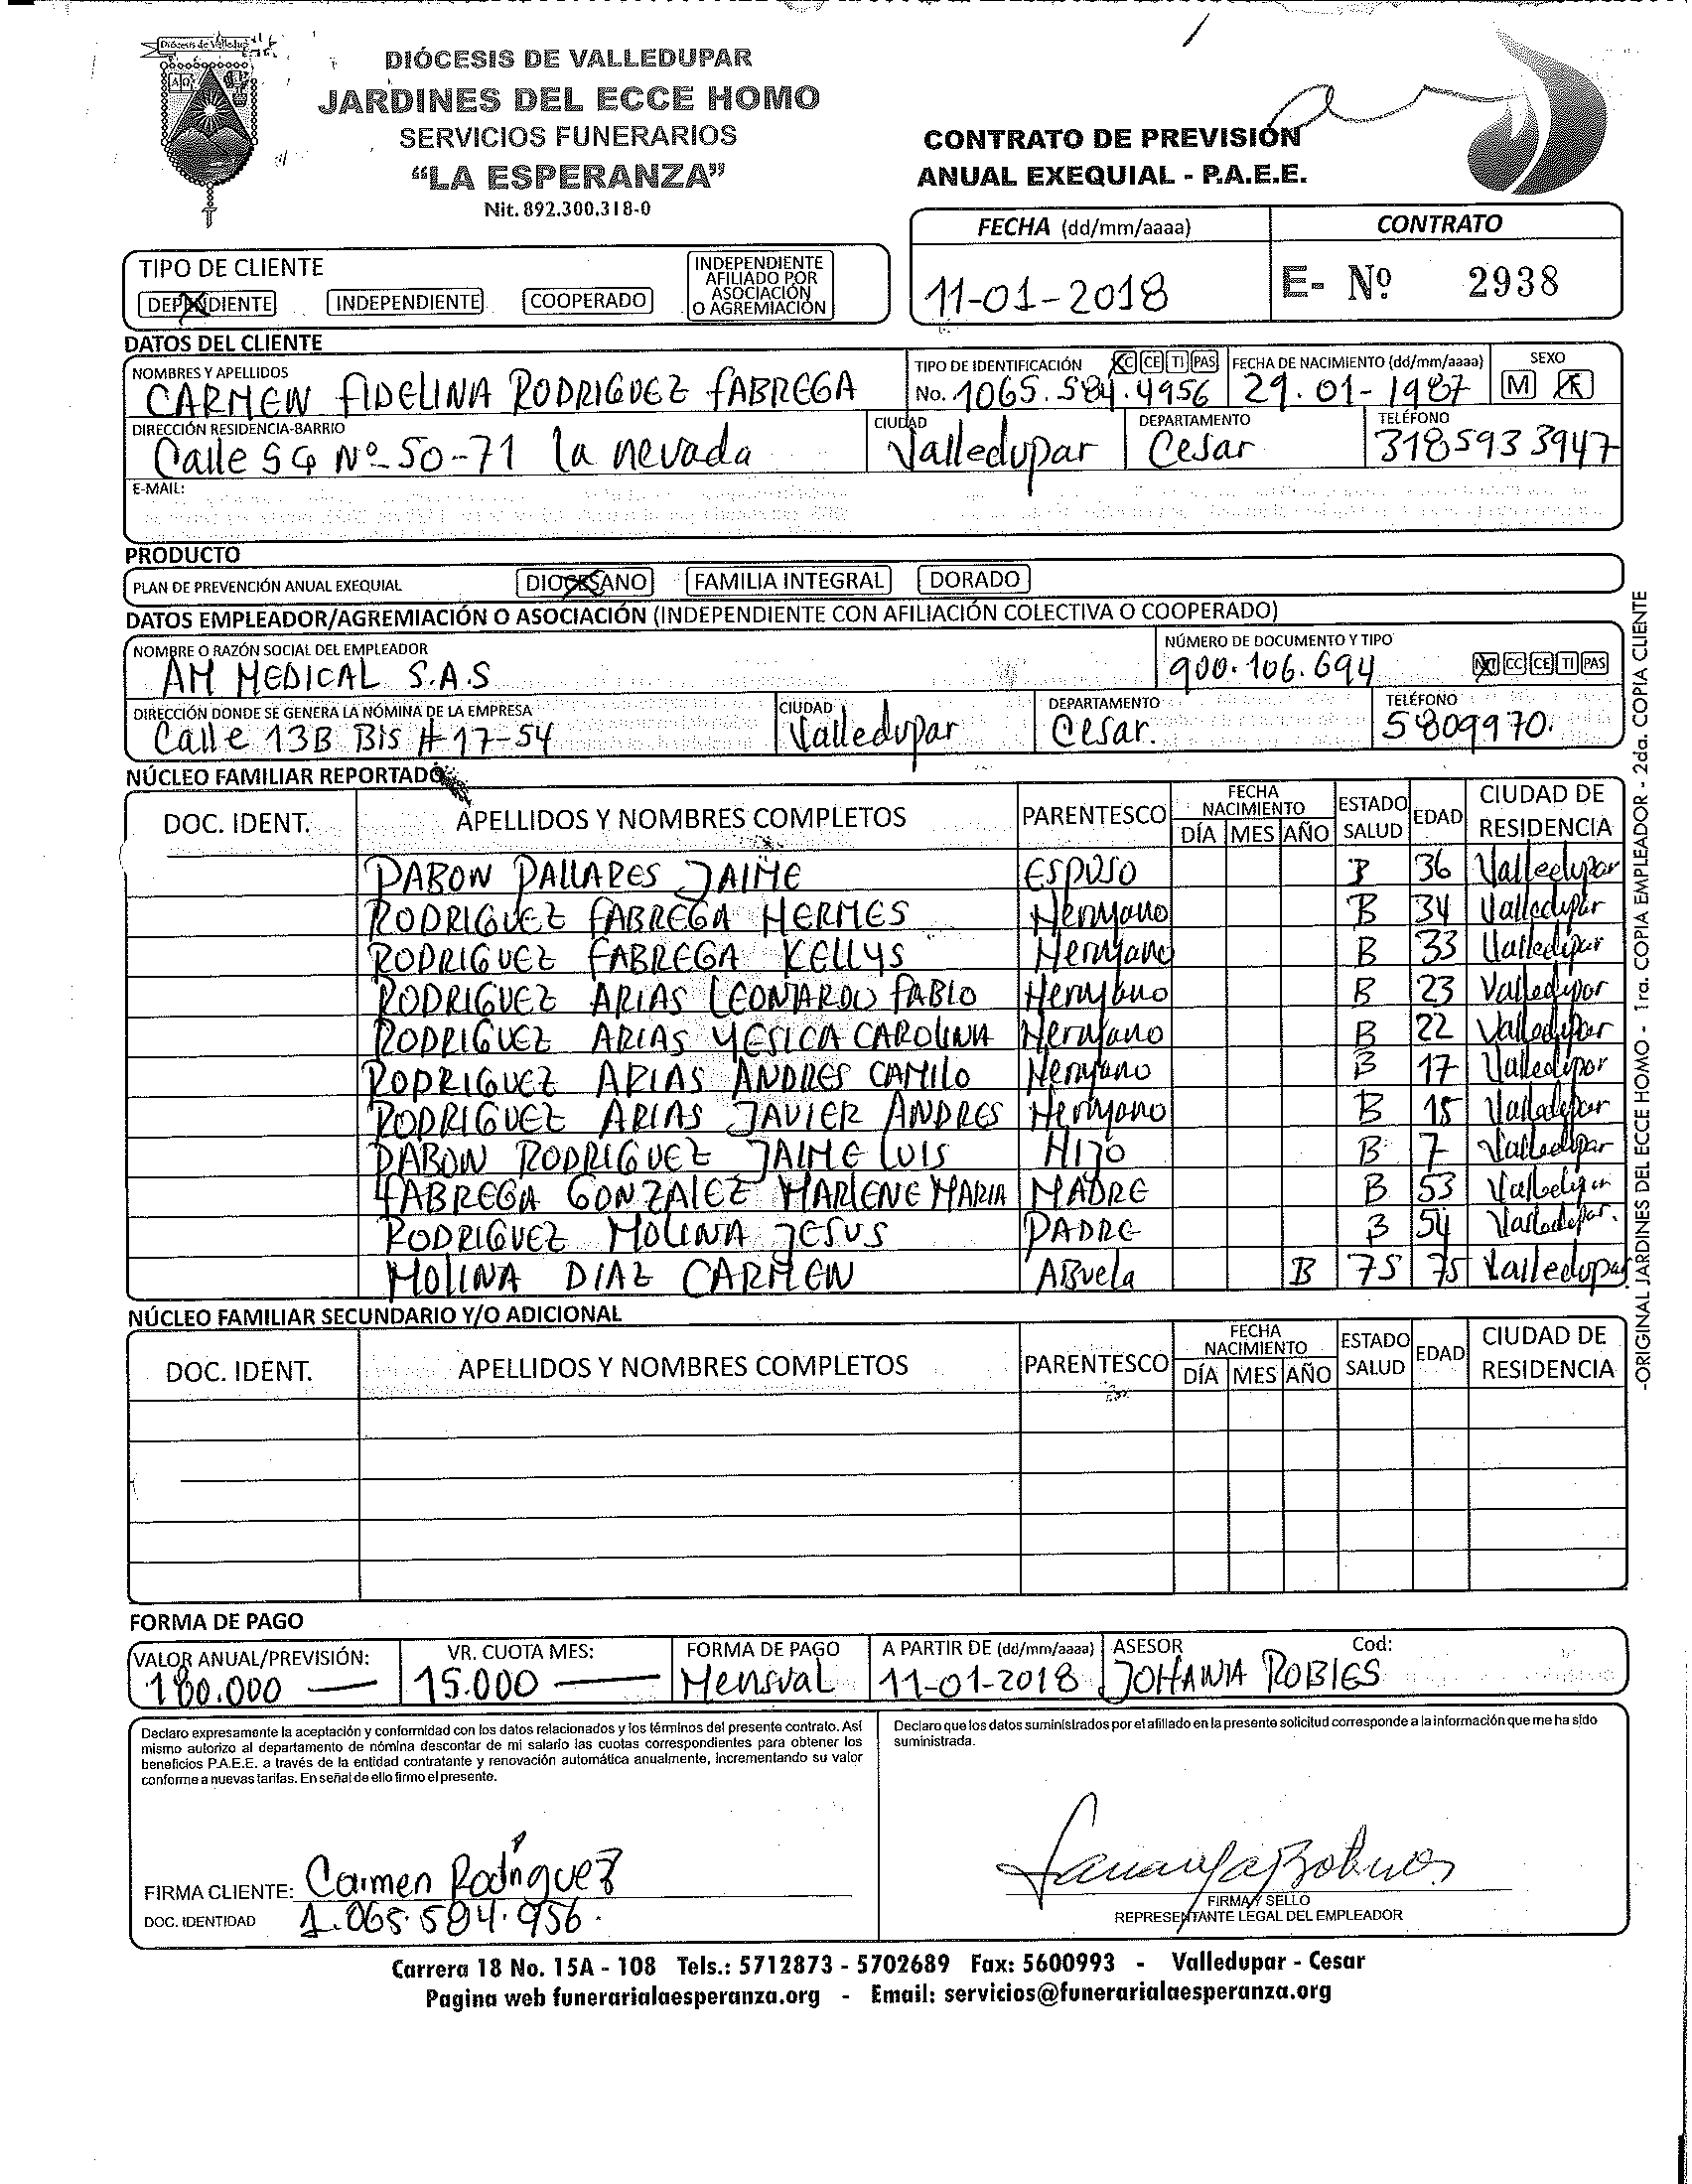 Diócesis de Valledupar
DIÓCESIS DE VALLEDUPAR
JARDINES DEL ECCE HOMO
SERVICIOS FUNERARIOS
“LA ESPERANZA”
Nit. 892.300.318-0
CONTRATO DE PREVISIÓN
ANUAL EXEQUIAL - P.A.E.E.
FECHA (dd/mm/aaaa) CONTRATO
11-01-2018 E- Nº 2938
TIPO DE CLIENTE
DEPENDIENTE INDEPENDIENTE COOPERADO INDEPENDIENTE AFILIADO POR ASOCIACIÓN O AGREMIACIÓN
DATOS DEL CLIENTE
NOMBRES Y APELLIDOS TIPO DE IDENTIFICACIÓN CC CE TI PAS FECHA DE NACIMIENTO (dd/mm/aaaa) SEXO
CARMEN FIDELINA RODRIGUEZ FABREGA No. 1065.584.4956 29.01-1987 M F
DIRECCIÓN RESIDENCIA-BARRIO CIUDAD DEPARTAMENTO TELÉFONO
Calle 5G Nº 50-71 la nevada Valledupar Cesar 318593 3947
E-MAIL:
PRODUCTO
PLAN DE PREVENCIÓN ANUAL EXEQUIAL DIOCESANO FAMILIA INTEGRAL DORADO
DATOS EMPLEADOR/AGREMIACIÓN O ASOCIACIÓN (INDEPENDIENTE CON AFILIACIÓN COLECTIVA O COOPERADO)
NOMBRE O RAZÓN SOCIAL DEL EMPLEADOR NÚMERO DE DOCUMENTO Y TIPO
AM MEDICAL S.A.S 900.106.694 NIT CC CE TI PAS
DIRECCIÓN DONDE SE GENERA LA NÓMINA DE LA EMPRESA CIUDAD DEPARTAMENTO TELÉFONO
Calle 13B Bis # 17-54 Valledupar Cesar. 5809970.
NÚCLEO FAMILIAR REPORTADO
DOC. IDENT. APELLIDOS Y NOMBRES COMPLETOS PARENTESCO FECHA NACIMIENTO DÍA MES AÑO ESTADO SALUD EDAD CIUDAD DE RESIDENCIA
PABON PALLARES JAIME ESPOSO B 36 Valledupar
RODRIGUEZ FABREGA HERMES Hermano B 34 Valledupar
RODRIGUEZ FABREGA KELLYS Hermano B 33 Valledupar
RODRIGUEZ ARIAS LEONARDO FABIO Hermano B 23 Valledupar
RODRIGUEZ ARIAS YESICA CAROLINA Hermano B 22 Valledupar
RODRIGUEZ ARIAS ANDRES CAMILO Hermano B 17 Valledupar
RODRIGUEZ ARIAS JAVIER ANDRES Hermano B 15 Valledupar
PABON RODRIGUEZ JAIME LUIS HIJO B 7 Valledupar
FABREGA GONZALEZ MARLENE MARIA MADRE B 53 Valledupar
RODRIGUEZ MOLINA JESUS PADRE B 54 Valledupar.
MOLINA DIAZ CARMEN ABuela B 75 75 Valledupar
NÚCLEO FAMILIAR SECUNDARIO Y/O ADICIONAL
DOC. IDENT. APELLIDOS Y NOMBRES COMPLETOS PARENTESCO FECHA NACIMIENTO DÍA MES AÑO ESTADO SALUD EDAD CIUDAD DE RESIDENCIA
FORMA DE PAGO
VALOR ANUAL/PREVISIÓN: VR. CUOTA MES: FORMA DE PAGO A PARTIR DE (dd/mm/aaaa) ASESOR Cod:
180.000 — 15.000 — Mensual 11-01-2018 JOHANA ROBLES
Declaro expresamente la aceptación y conformidad con los datos relacionados y los términos del presente contrato. Así
mismo autorizo al departamento de nómina descontar de mi salario las cuotas correspondientes para obtener los
beneficios P.A.E.E. a través de la entidad contratante y renovación automática anualmente, incrementando su valor
conforme a nuevas tarifas. En señal de ello firmo el presente.
Declaro que los datos suministrados por el afiliado en la presente solicitud corresponde a la información que me ha sido
suministrada.
FIRMA CLIENTE: Carmen Rodriguez
DOC. IDENTIDAD 1.065.584.956.
FIRMA Y SELLO
REPRESENTANTE LEGAL DEL EMPLEADOR
Carrera 18 No. 15A - 108 Tels.: 5712873 - 5702689 Fax: 5600993 - Valledupar - Cesar
Pagina web funerarialaesperanza.org - Email: servicios@funerarialaesperanza.org
-ORIGINAL JARDINES DEL ECCE HOMO - 1ra. COPIA EMPLEADOR - 2da. COPIA CLIENTE